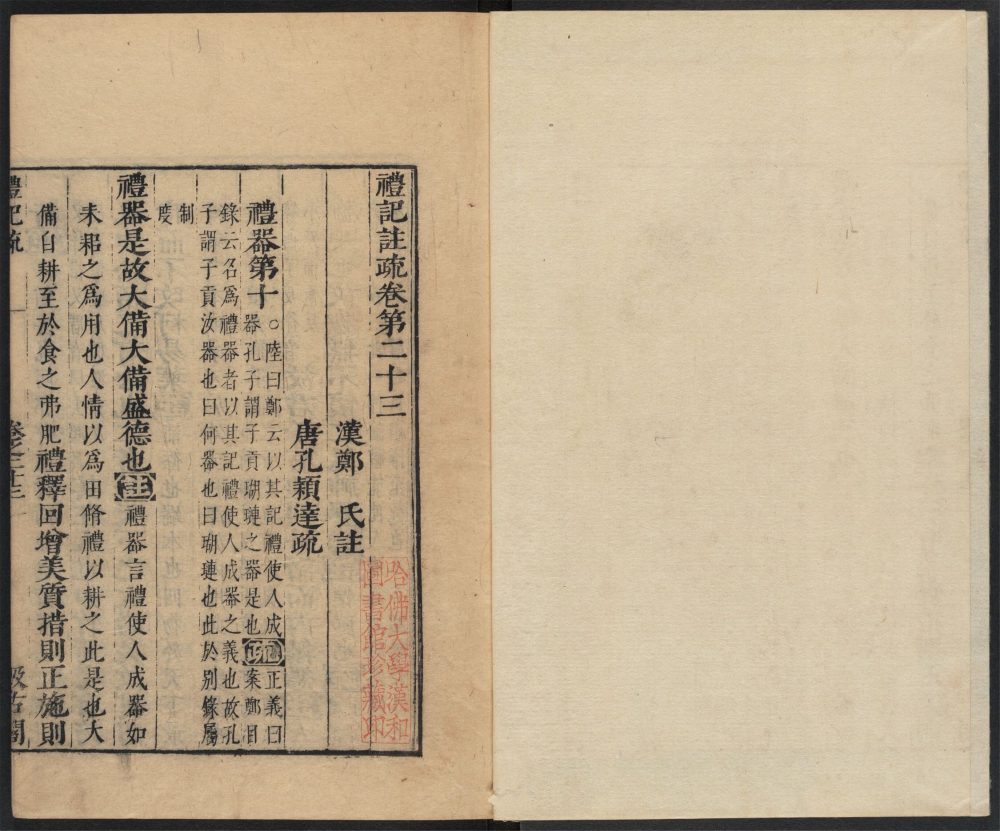 禮記註疏卷第二十三
漢鄭 氏註
唐孔穎達疏
禮器第十 ○陸曰鄭云以其記禮使人成器孔子謂子貢瑚璉之器是也 疏 正義曰案鄭目
錄云名爲禮器者以其記禮使人成器之義也故孔
子謂子貢汝器也曰何器也曰瑚璉也此於別錄屬
制
度
禮器是故大備大備盛德也 註 禮器言禮使人成器如
耒耜之爲用也人情以爲田脩禮以耕之此是也大
備自耕至於食之弗肥禮釋回增美質措則正施則
禮記疏 卷之二十三 汲古閣
哈佛大學漢和
圖書館珍藏印